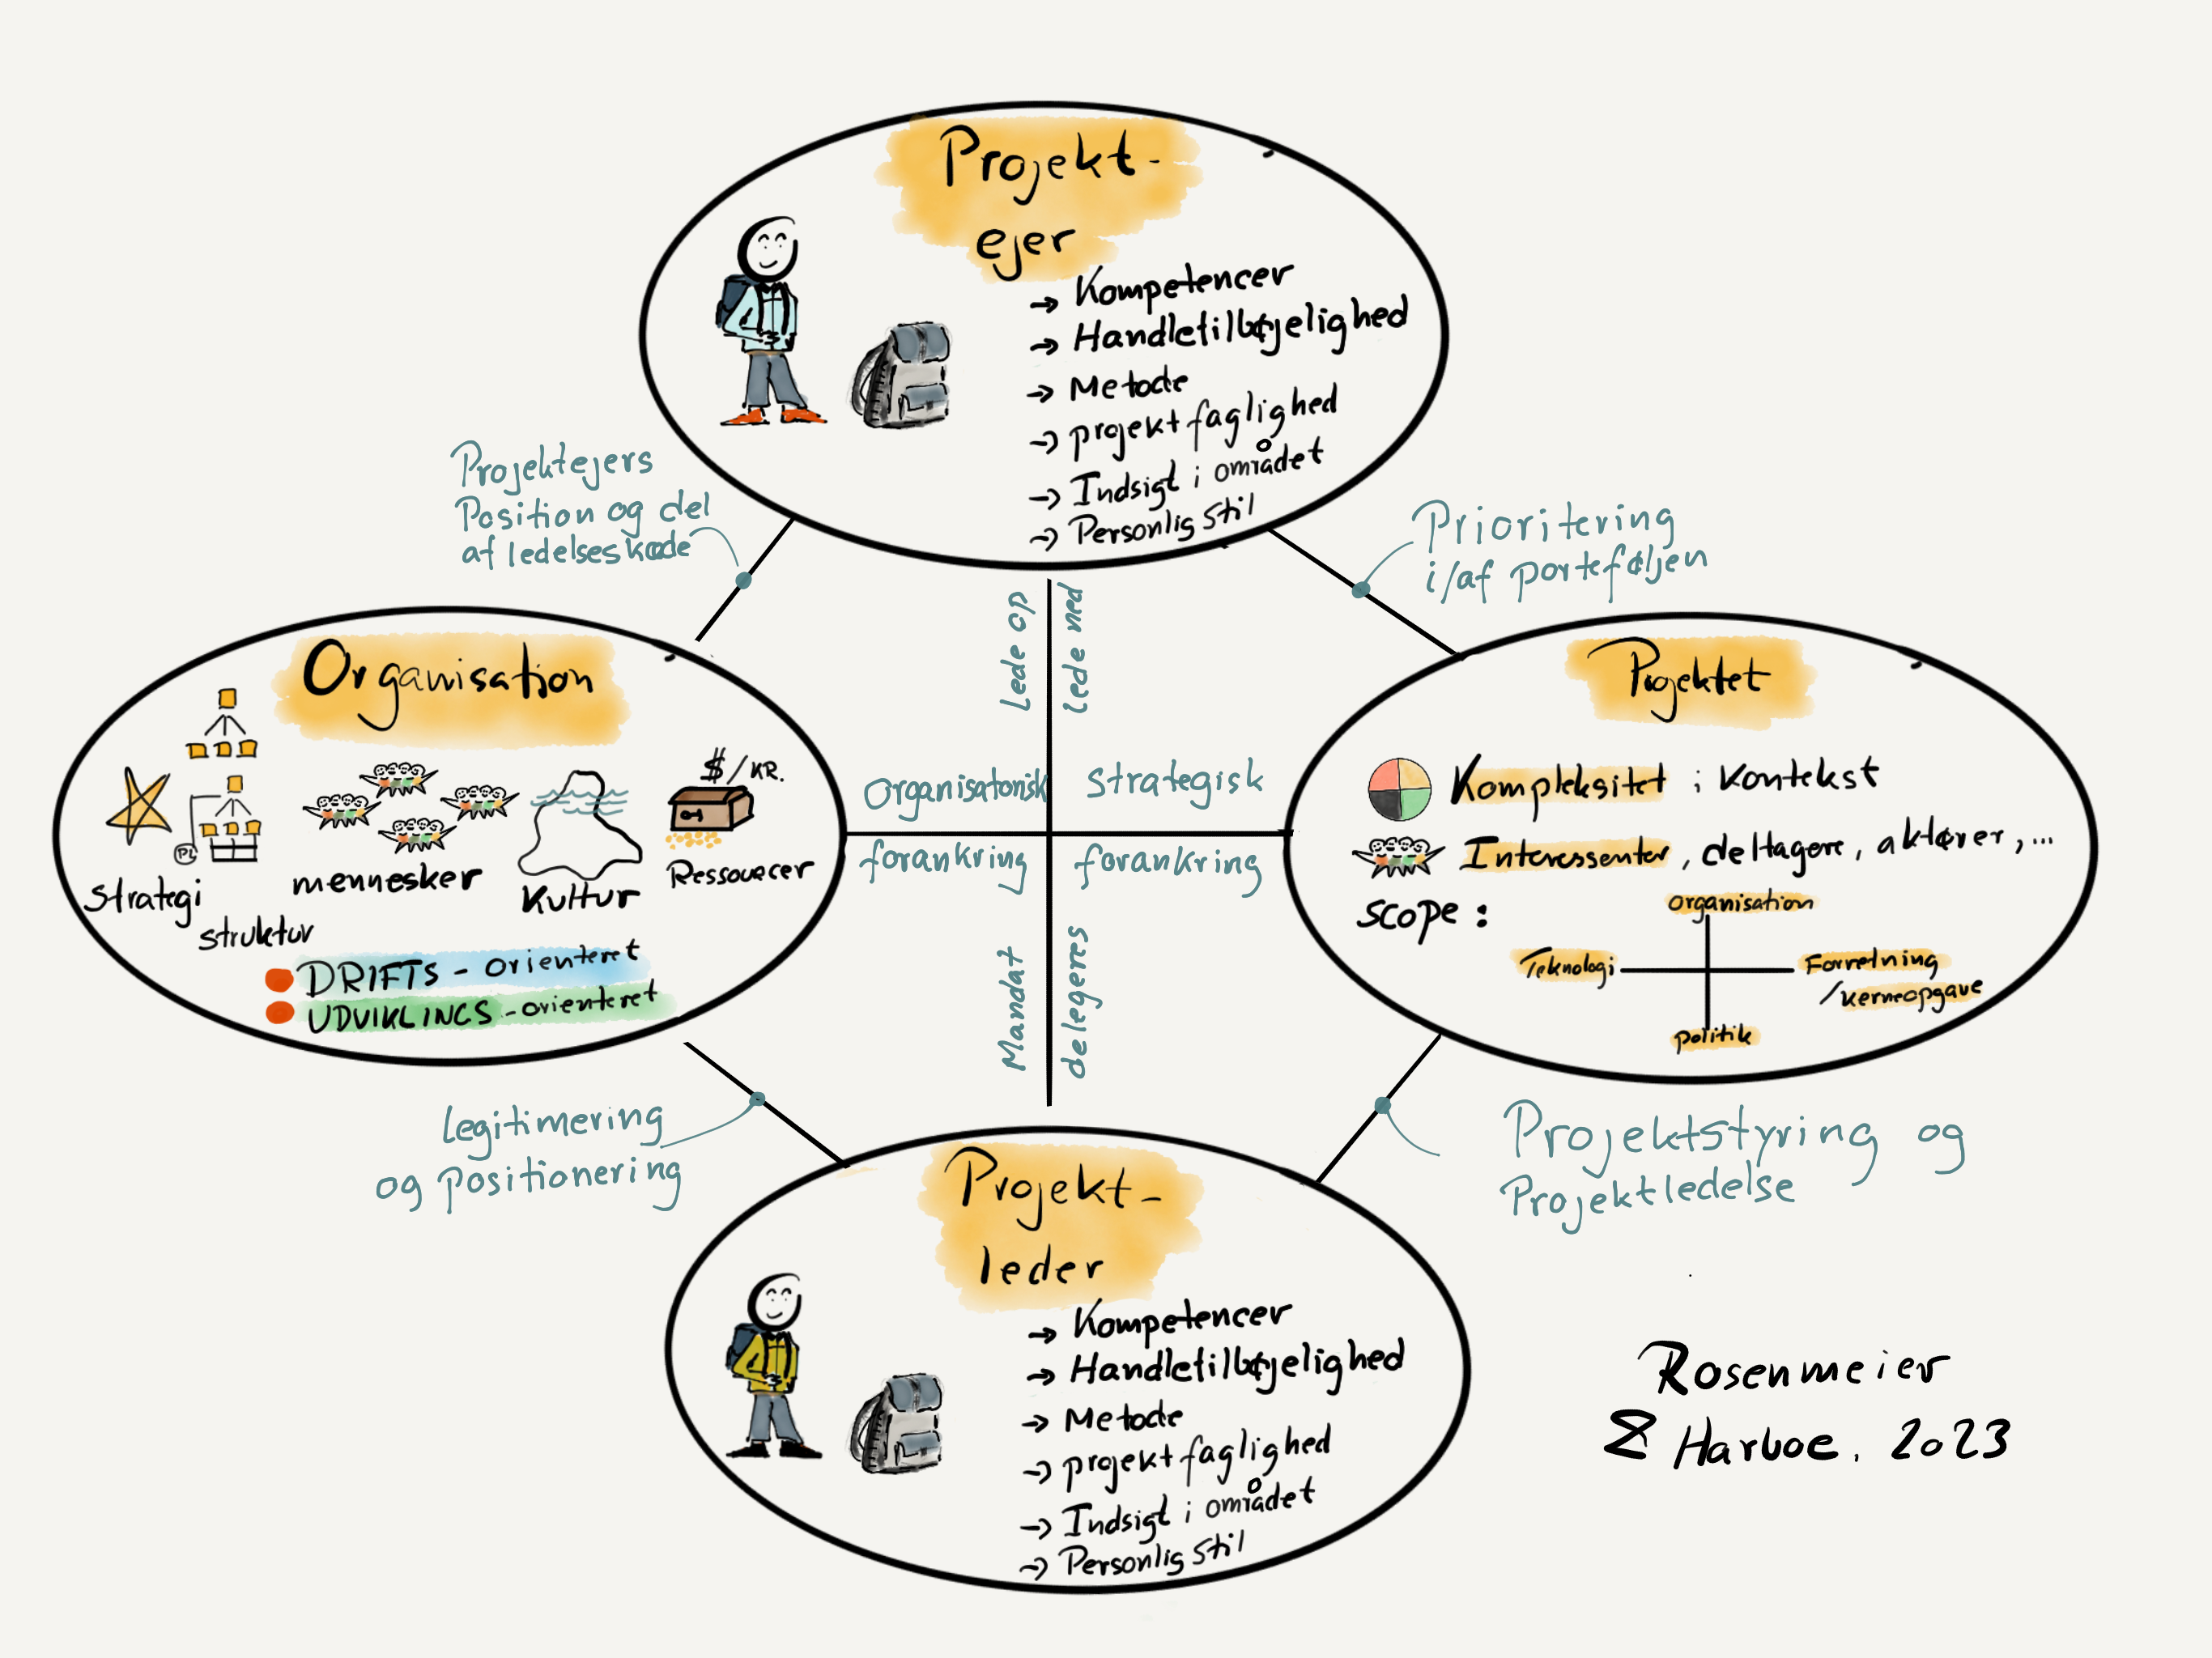 Projekt-
ejer
→ Kompetencer
→ Handletilbøjelighed
→ Metode
→ projektfaglighed
→ Indsigt i området
→ Personlig stil
Projektejers
Position og del
af ledelseskæde
Prioritering
i/af porteføljen
Lede op
lede ned
Organisation
$/KR.
PL
strategi
struktur
mennesker
Kultur
Ressourcer
DRIFTS - orienteret
UDVIKLINGS - orienteret
Organisatorisk
forankring
Strategisk
forankring
Mandat
delegeres
Projektet
Kompleksitet i kontekst
Interessenter, deltagere, aktører, ...
scope:
organisation
Teknologi
Forretning
/kerneopgave
politik
Legitimering
og positionering
Projektstyring og
Projektledelse
Projekt-
leder
→ Kompetencer
→ Handletilbøjelighed
→ Metode
→ projektfaglighed
→ Indsigt i området
→ Personlig stil
Rosenmeier
& Harboe, 2023